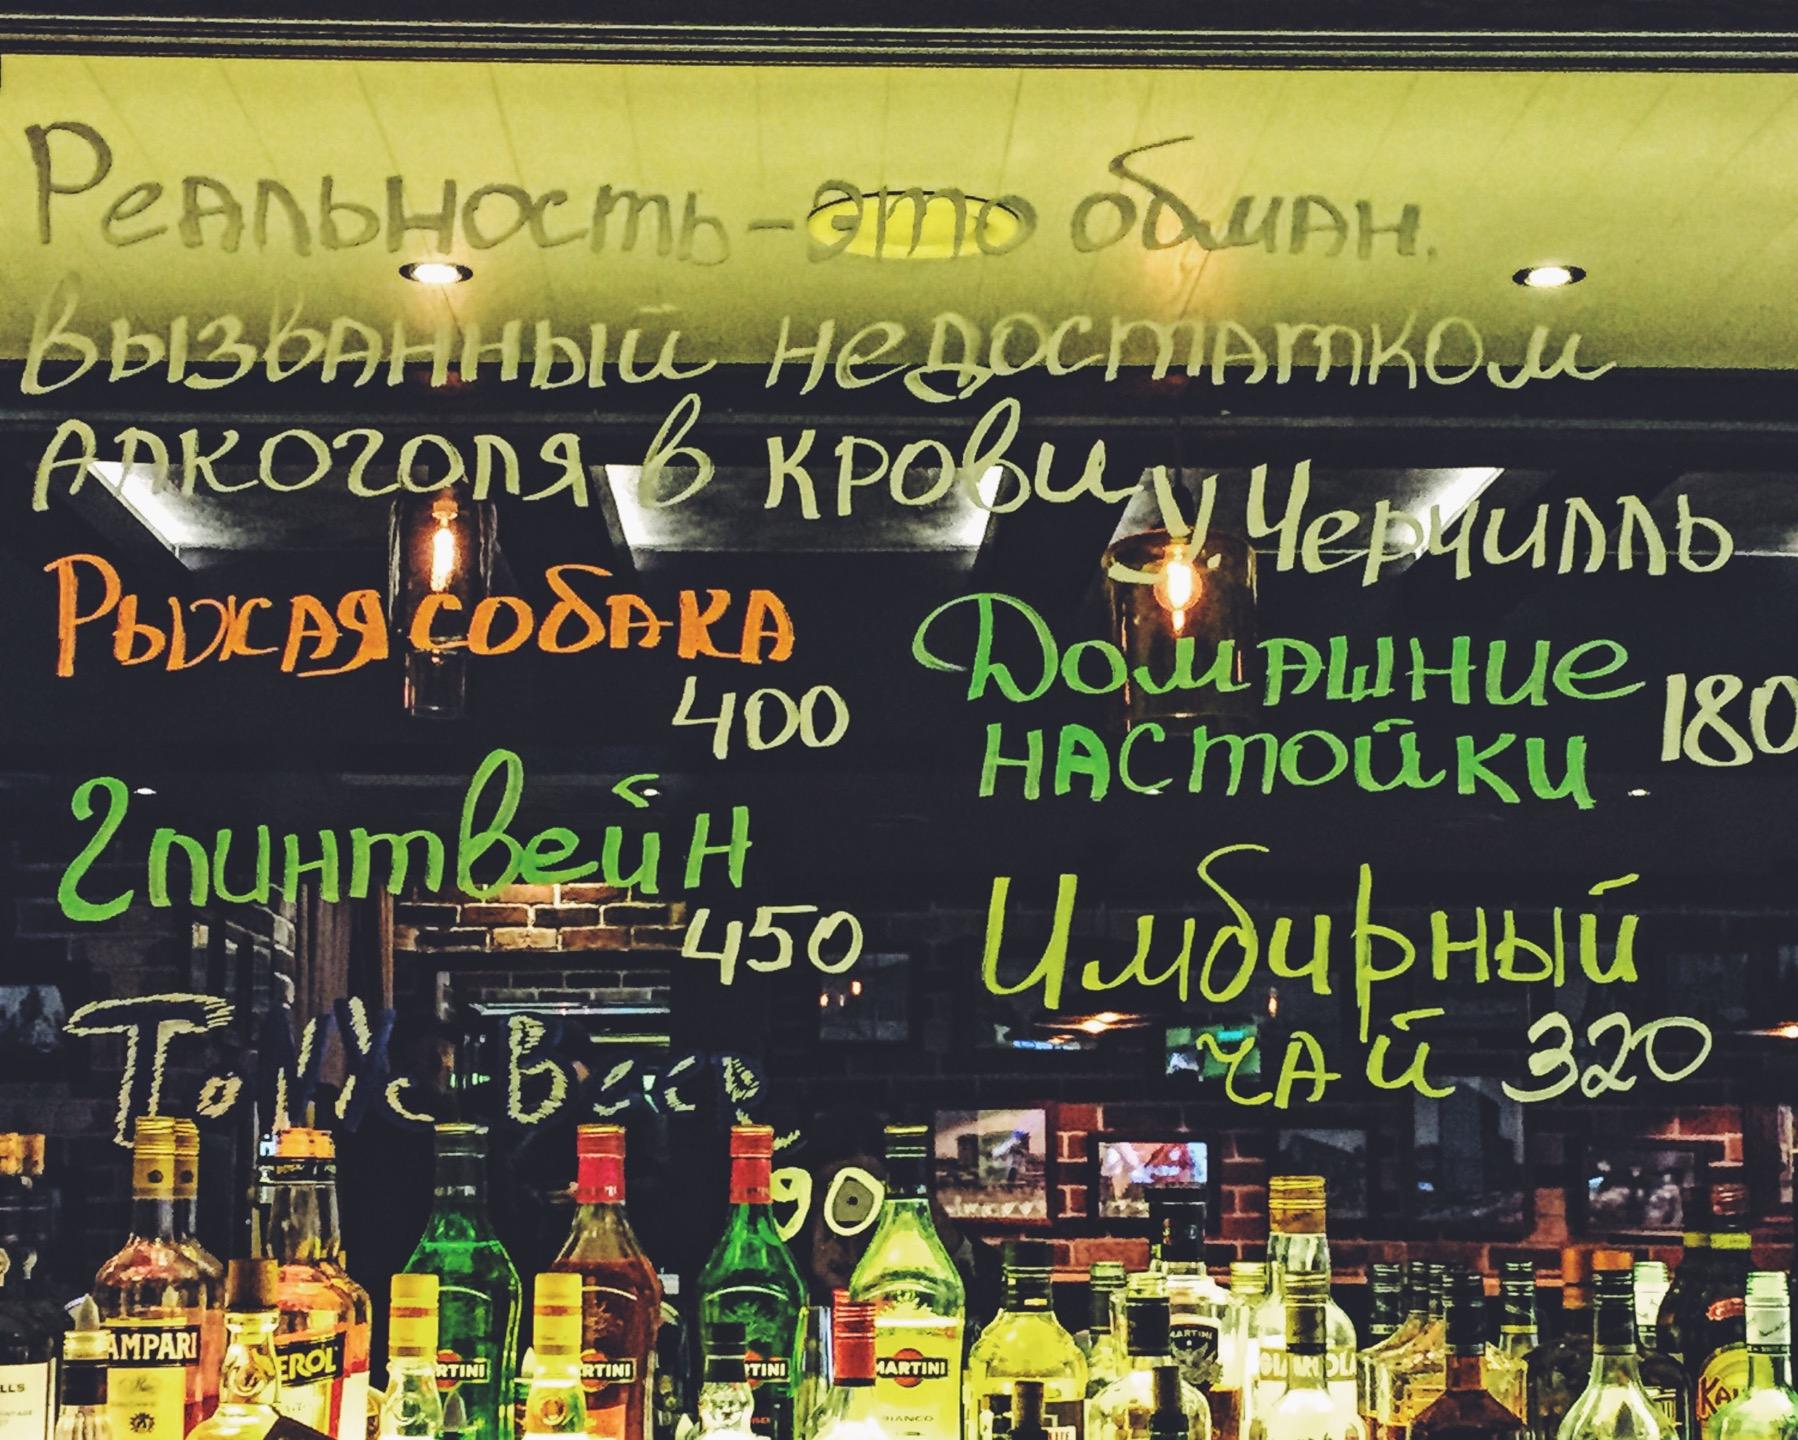 Реальность - это обман.
вызванный недостатком
алкоголя в крови У Черчилль
Рыжая собака
400
Домашние
настойки
180
Глинтвейн
450
Имбирный
чай 320
90
AMPARI
EROL
RTINI
RTINI
TINI
MARTINI
BIANCO
MARTINI